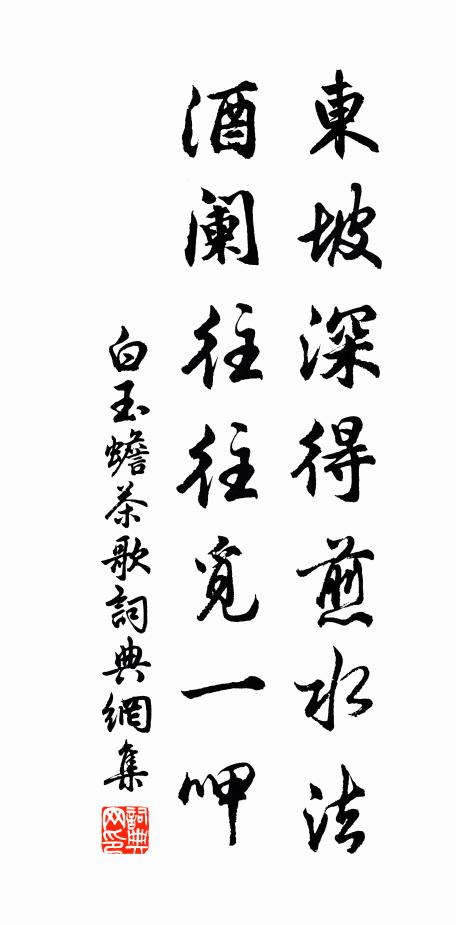 東坡深得煎水法
酒阑往往覓一呷
白玉蟾茶歌詞典網集
詞典网印